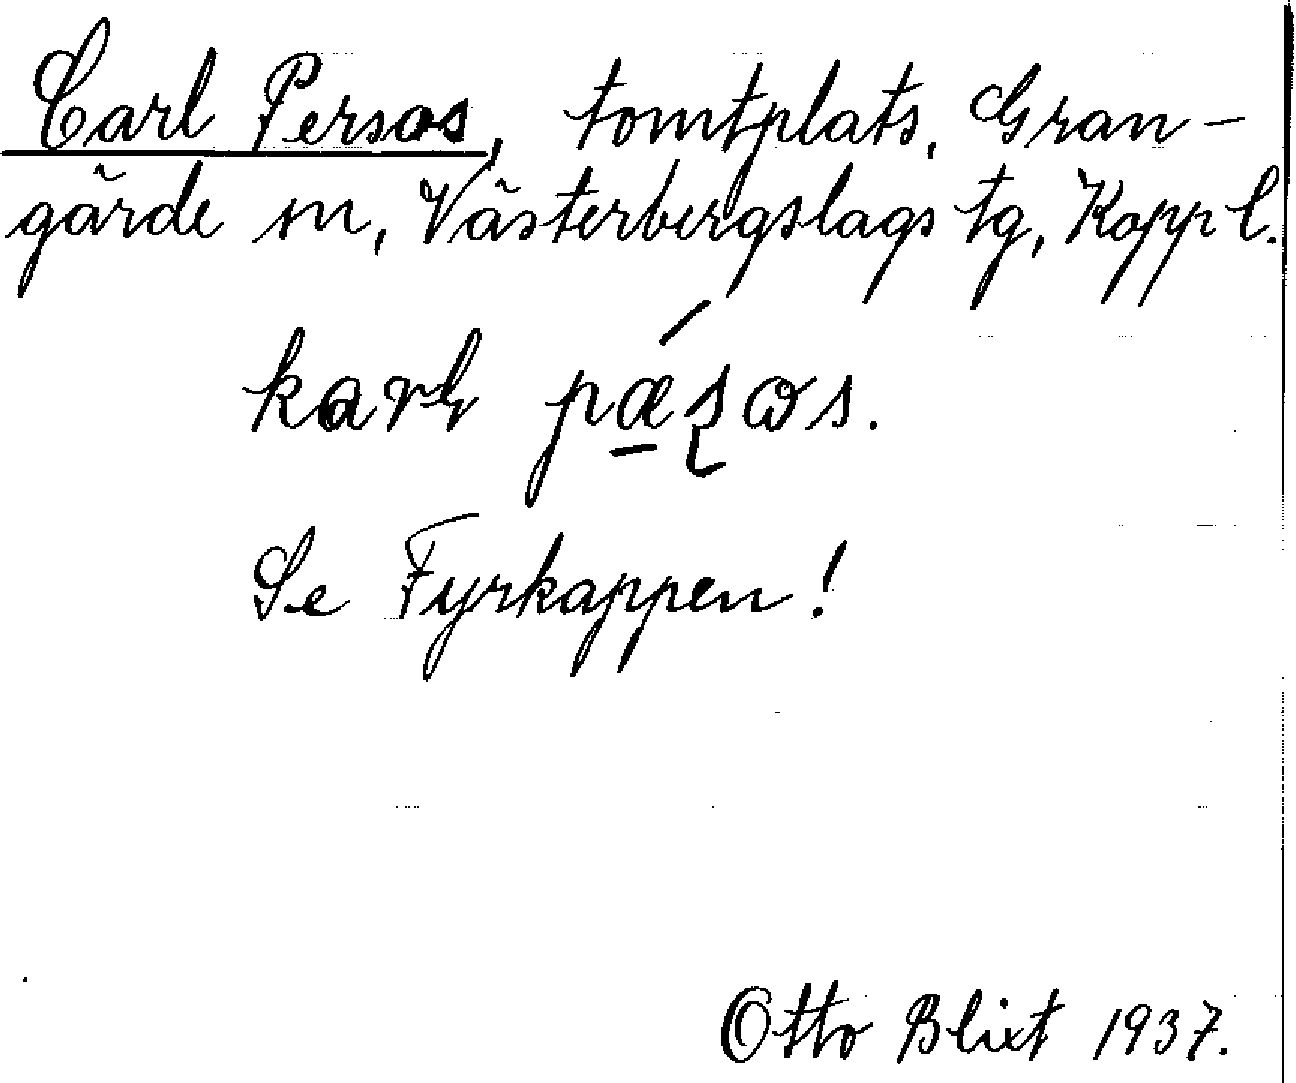 Carl Persos, tomtplats, Gran-
gärde sn, Västerbergslags tg, Kopp l.
karɫ pǽ̠ʂɷs.
Se Fyrkappen!
Otto Blixt 1937.